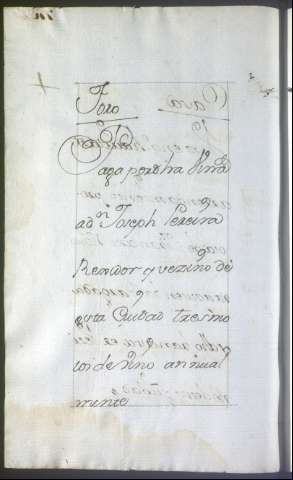 Foro Casa
Paga por otra Viña
a dn Joseph Pereira
Rexidor y vezino de
esta Ciudad tres mo
ios de vino annual
mente